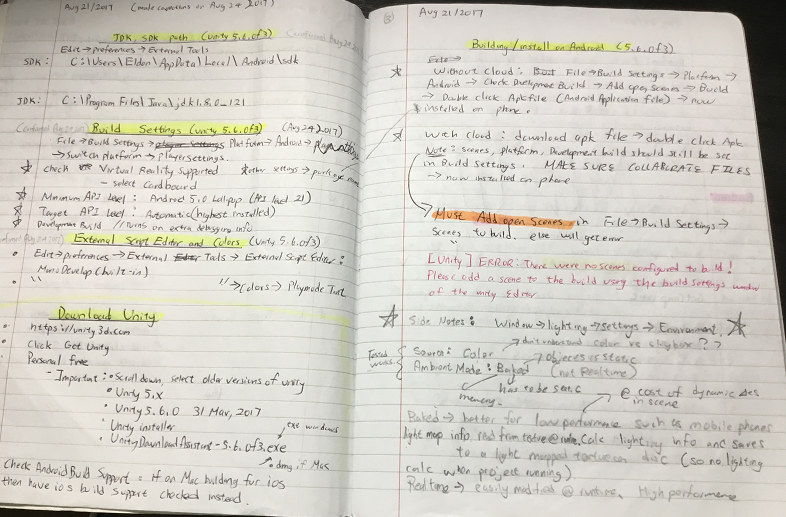 Aug 21/2017 (made corrections on Aug 24 2017)
JDK, SDK path (Unity 5.6.0f3) (Confirmed Aug 24 2017)
Edit→preferences→External Tools
SDK: C:\Users\Elden\AppData\Local\Android\sdk
JDK: C:\Program Files\Java\jdk1.8.0_121
Build Settings (Unity 5.6.0f3) (Aug 24 2017)
File→Build Settings→player settings Platform→Android→
→Switch platform→Player settings.
Check Virtual Reality Supported
- select cardboard
Minimum API level: Android 5.0 Lollipop (API level 21)
Target API level: Automatic (highest installed)
Development Build //Turns on extra debugging info
External Script Editor and Colors (Unity 5.6.0f3)
Edit→preferences→External Tools→External Script Editor:
MonoDevelop (built-in)
" "→Colors→Playmode Tint
Download Unity
https://unity3d.com
Click Get Unity
Personal free
- Important: • Scroll down, select older versions of unity
• Unity 5.x
• Unity 5.6.0 31 Mar, 2017
• Unity installer
exe windows
• UnityDownloadAssistant-5.6.0f3.exe
.dmg if Mac
Check Android Build Support = If on Mac building for ios
then have ios build support checked instead.
Aug 21/2017
Building/install on Android (5.6.0f3)
Without cloud: File→Build Settings→Platform→
Android→Check Development Build→Add open scenes→Build
→Double click Apk file (Android Application file)→now
installed on phone.
With cloud: download apk file→double click Apk
Note: scenes, platform, Development build should still be set
in Build Settings. MAKE SURE COLLABORATE FILES
→now installed on phone
Must Add open Scenes in File→Build Settings→
Scenes to build. else will get error
[Unity] ERROR: There were no scenes configured to build!
Please add a scene to the build using the build settings window
of the unity Editor
Side Notes: Window→lighting→settings→Environment,
don't understand color vs skybox??
Tested
works.
Source: Color
objects is static
Ambient Mode: Baked (not Realtime)
has to be static
memory.
@ cost of dynamic
in scene
Baked→better for low performance such as mobile phones
light map info, read from texture @ runtime, Calc lighting info and saves
to a light mapped texture on disc (so no lighting
calc when project running).
Realtime→easily modified @ runtime, High performance